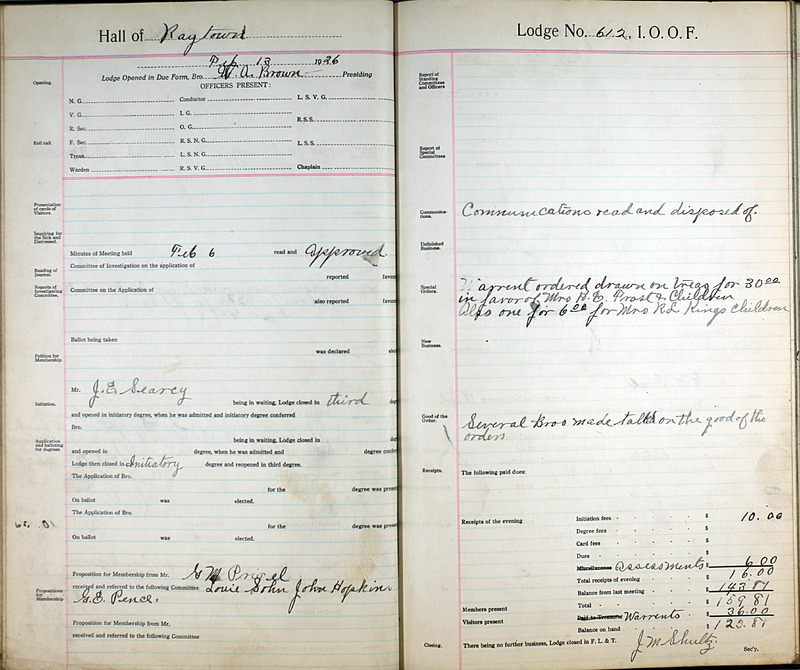 Hall of Raytown
Feb 13 1936
Opening.
Lodge Opened in Due Form, Bro. W. A. Brown Presiding
OFFICERS PRESENT:
N. G. Conductor L. S. V. G.
V. G. I. G. R.S.S.
R. Sec. O. G.
Roll call.
F. Sec. R. S. N. G. L. S. S.
Treas. L. S. N. G.
Warden R. S. V. G. Chaplain
Presentation of cards of Visitors.
Inquiring for the Sick and Distressed.
Minutes of Meeting held Feb 6 read and Approved
Reading of Journal.
Committee of Investigation on the application of
reported favor
Reports of Investigating Committee.
Committee on the Application of
also reported favor
Ballot being taken
was declared elec
Petition for Membership
Mr. J. E. Searcy
Initiation.
being in waiting, Lodge closed in third deg
and opened in initiatory degree, when he was admitted and initiatory degree conferred
Bro.
Application and balloting for degrees
being in waiting, Lodge closed in de
and opened in degree, when he was admitted and degree confe
Lodge then closed in Initiatory degree and reopened in third degree.
The Application of Bro.
for the degree was pres
On ballot was elected.
The Application of Bro.
for the degree was pres
On ballot was elected.
Proposition for Membership from Mr. G M
received and referred to the following Committee Louie Sohn John Hopkins
Propositions for Membership
G. E. Pence.
Proposition for Membership from Mr.
received and referred to the following Committee
Lodge No. 612, I. O. O. F.
Report of Standing Committees and Officers
Report of Special Committees
Communications.
Communications read and disposed of.
Unfinished Business.
Special Orders.
Warrent ordered drawn on Treas for 30 00
in favor of Mrs H. E. Frost & Children
Also one for 6 00 for Mrs R L Kings Children
New Business.
Good of the Order.
Several Bros made talks on the good of the
orders
Receipts.
The following paid dues:
Receipts of the evening Initiation fees $ 10.00
Degree fees $
Card fees $
Dues $
Miscellaneous Assessments $ 6.00
Total receipts of evening $ 16.00
Balance from last meeting $ 143.81
Members present Total $ 159.81
Paid to Treasurer Warrents $ 36.00
Visitors present
Balance on hand $ 123.81
Closing.
There being no further business, Lodge closed in F. L. & T. J M Shultz Sec'y.